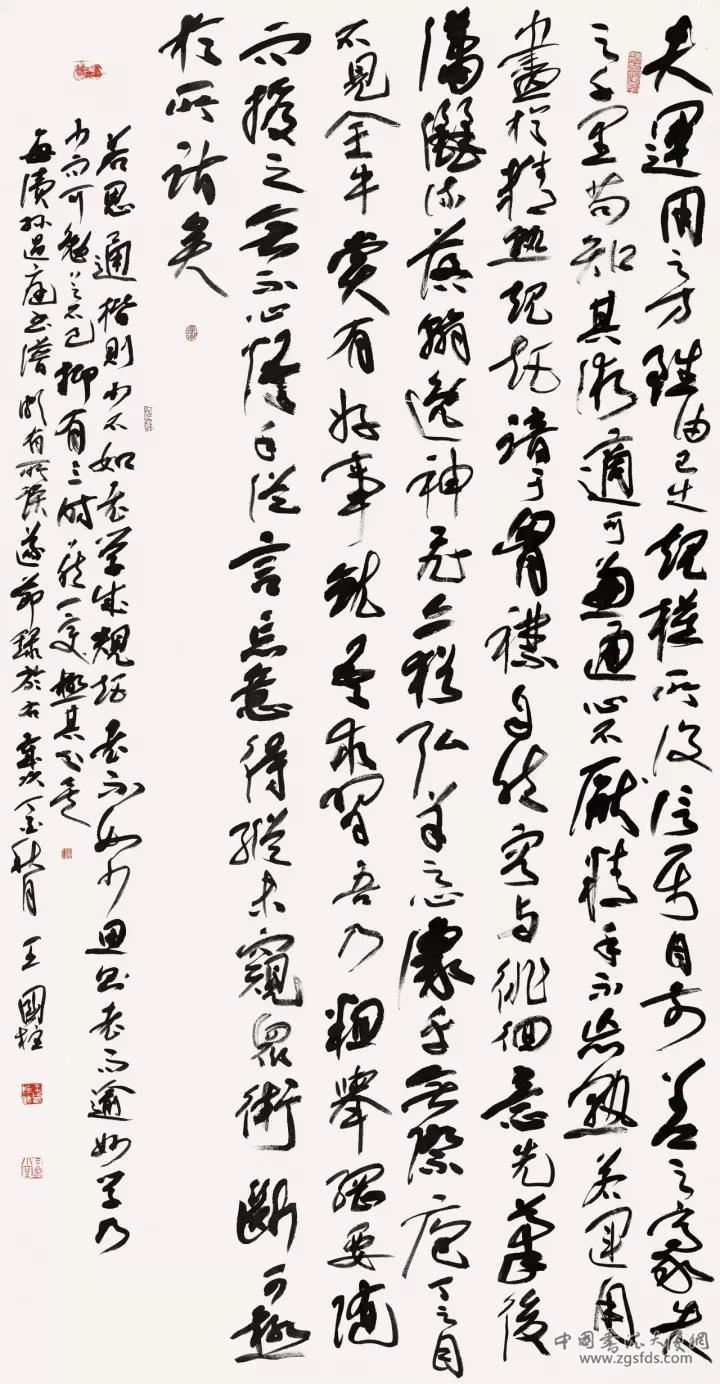 夫運用之方雖由己出規模所設信屬目前差之一豪失
之千里苟知其術適可兼通心不厭精手不忘熟若運用
盡於精熟規矩諳于胷襟自然容与徘徊意先筆後
瀟灑流落翰逸神飛亦猶弘羊之心豫乎無際庖丁之目
不見全牛嘗有好事就吾求習吾乃粗舉綱要隨
而授之無不心悟手從言忘意得縱未窺眾術斷可極
於所詣矣
若思通楷則少不如老學成規矩老不如少思則老而逾妙學乃
少而可勉勉之不已抑有三時時然一變極其分矣
每讀孫過庭書譜頗有所獲遂節錄於右歲次丁酉秋月 王國柱
www.zgsfds.com